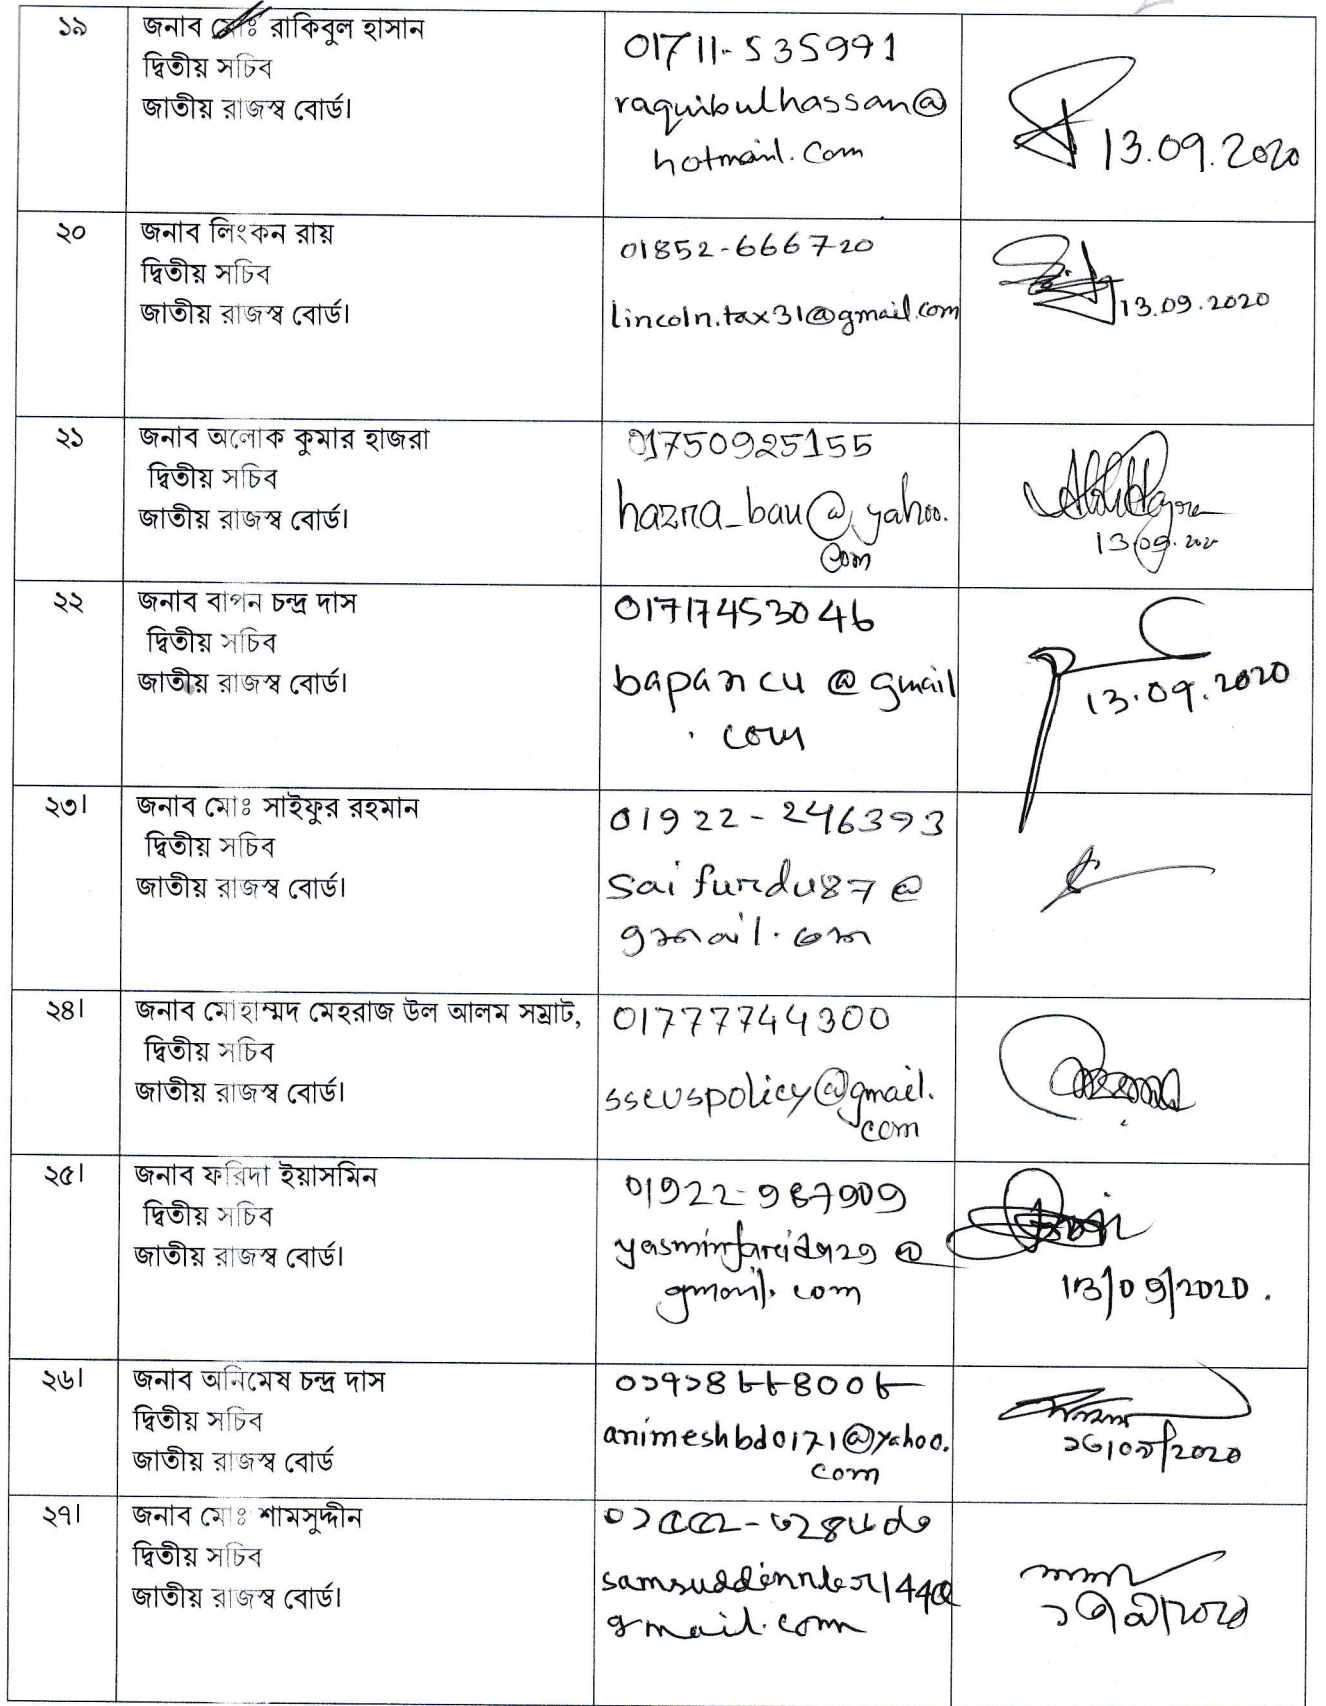 ১৯
জনাব মোঃ রাকিবুল হাসান
দ্বিতীয় সচিব
জাতীয় রাজস্ব বোর্ড।
01711-535991
raquibulhassan@
hotmail.com
13.09.2020
২০
জনাব লিংকন রায়
দ্বিতীয় সচিব
জাতীয় রাজস্ব বোর্ড।
01852-666720
lincoln.tax31@gmail.com
13.09.2020
২১
জনাব অলোক কুমার হাজরা
দ্বিতীয় সচিব
জাতীয় রাজস্ব বোর্ড।
01750925155
hazra_bau@yahoo.
com
13.09.
২২
জনাব বাপন চন্দ্র দাস
দ্বিতীয় সচিব
জাতীয় রাজস্ব বোর্ড।
01717453046
bapancu@gmail
.com
13.09.2020
২৩।
জনাব মোঃ সাইফুর রহমান
দ্বিতীয় সচিব
জাতীয় রাজস্ব বোর্ড।
01922-246393
saifurdu87@
gmail.com
২৪।
জনাব মোহাম্মদ মেহরাজ উল আলম সম্রাট,
দ্বিতীয় সচিব
জাতীয় রাজস্ব বোর্ড।
01777744300
sscuspolicy@gmail.
com
২৫।
জনাব ফরিদা ইয়াসমিন
দ্বিতীয় সচিব
জাতীয় রাজস্ব বোর্ড।
01922-987909
gmail.com
13/09/2020.
২৬।
জনাব অনিমেষ চন্দ্র দাস
দ্বিতীয় সচিব
জাতীয় রাজস্ব বোর্ড
০১৭১৪৮৮৪০০৮
animeshbd0171@yahoo.
com
২৭।
জনাব মোঃ শামসুদ্দীন
দ্বিতীয় সচিব
জাতীয় রাজস্ব বোর্ড।
gmail.com